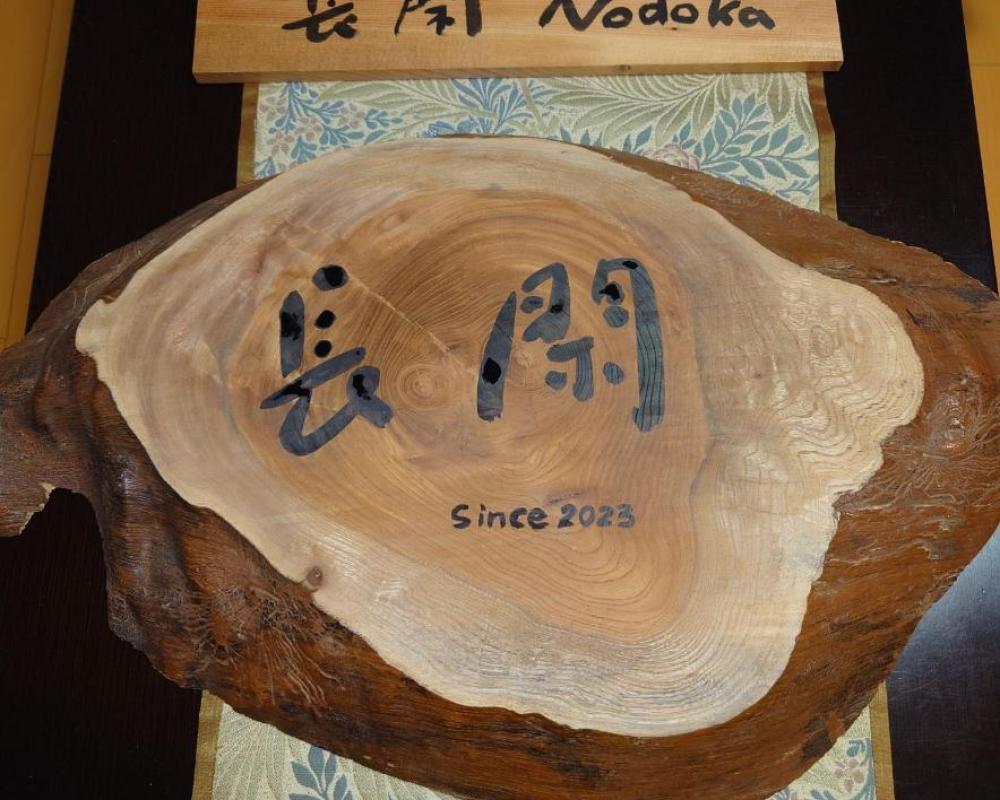 長閑 Nodoka
長閑
Since 2023